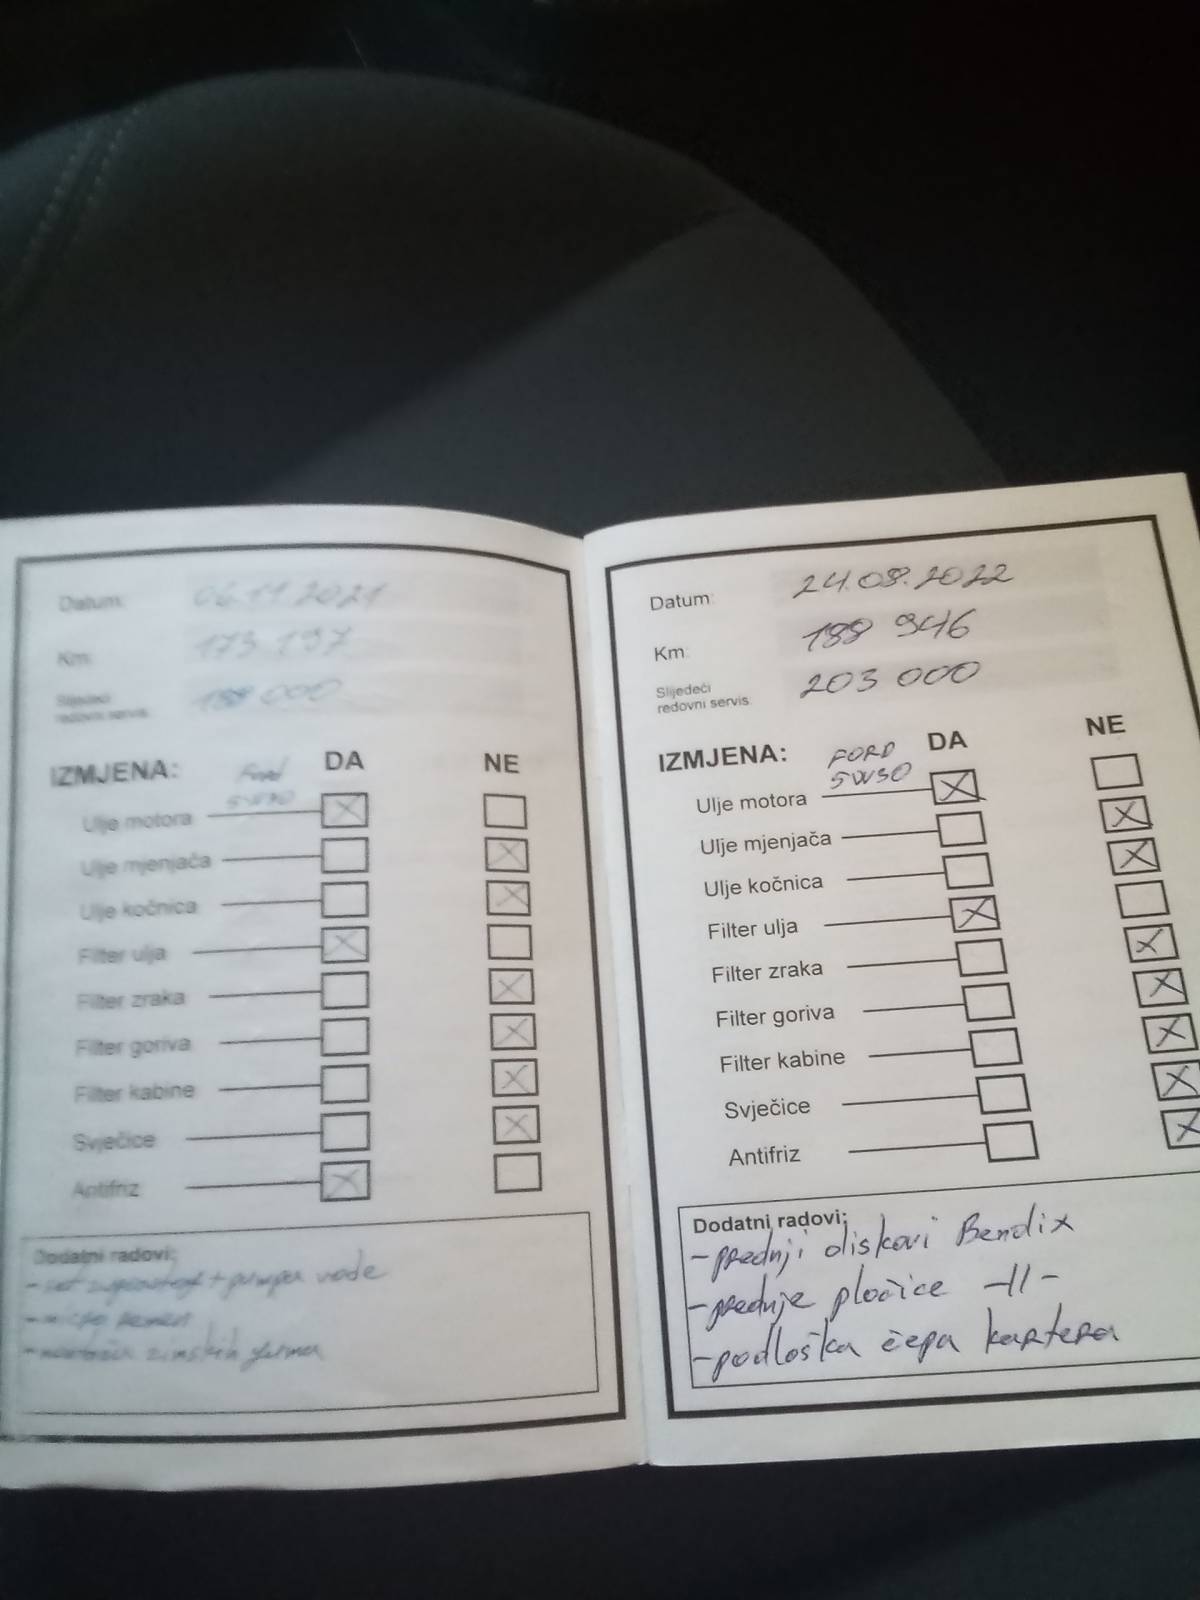 Datum: 06.11.2021
Km: 173 197
Slijedeći
redovni servis: 188 000
IZMJENA: DA NE
Ford
5W30
Ulje motora
Ulje mjenjača
Ulje kočnica
Filter ulja
Filter zraka
Filter goriva
Filter kabine
Svječice
Antifriz
Dodatni radovi:
- set zupčastog + pumpa vode
- remen
- zimskih guma
Datum: 24.08.2022
Km: 188 946
Slijedeći
redovni servis: 203 000
IZMJENA: DA NE
FORD
5W30
Ulje motora
Ulje mjenjača
Ulje kočnica
Filter ulja
Filter zraka
Filter goriva
Filter kabine
Svječice
Antifriz
Dodatni radovi:
- prednji diskovi Bendix
- prednje pločice -||-
- podloška čepa kartera